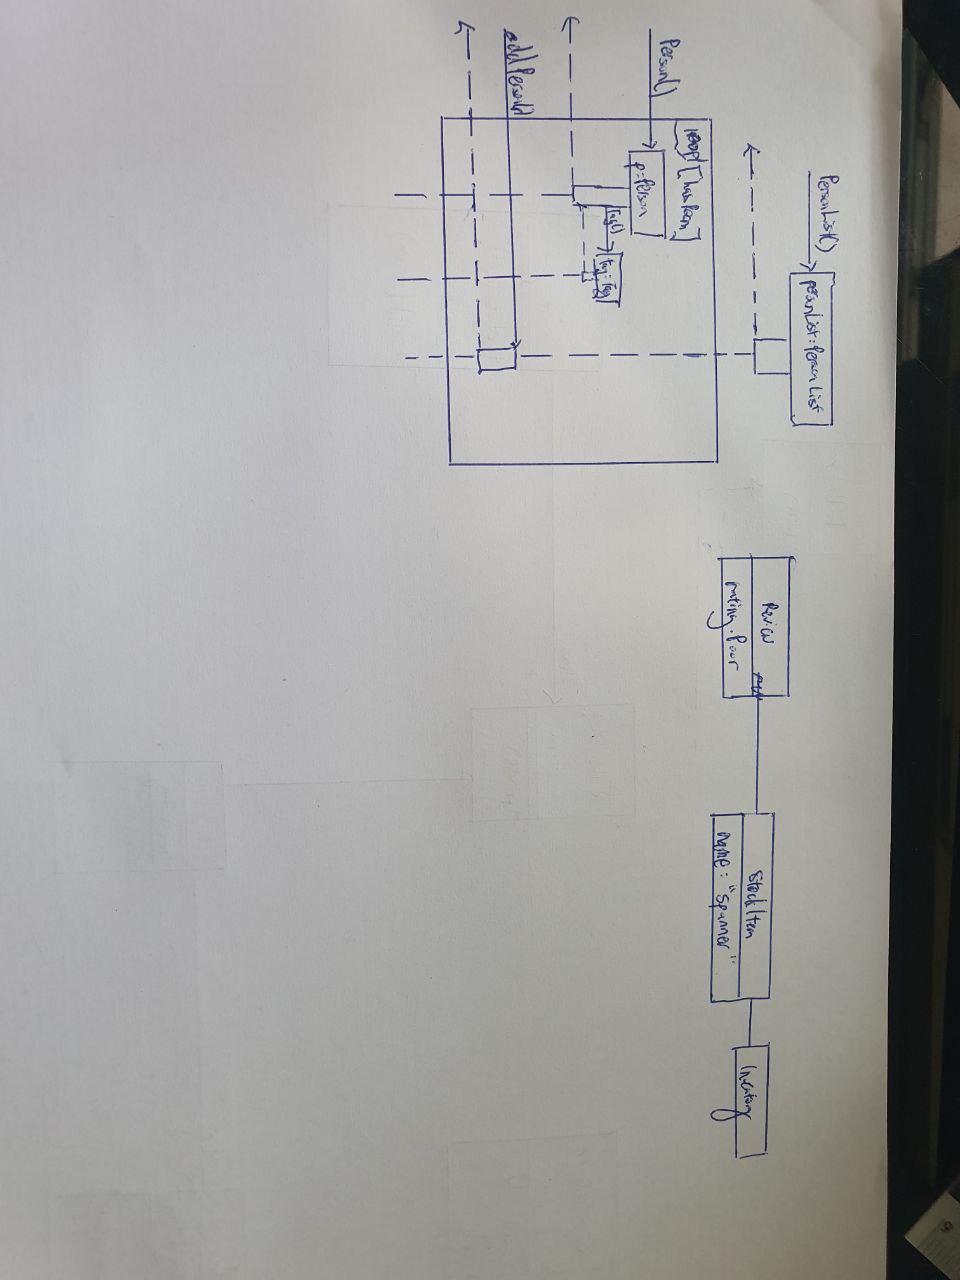 PersonList()
personList:PersonList
loop
Person()
p:Person
Tag()
tag:Tag
addPerson()
Review
rating:Poor
StockItem
name: "Spanner"
Inventory